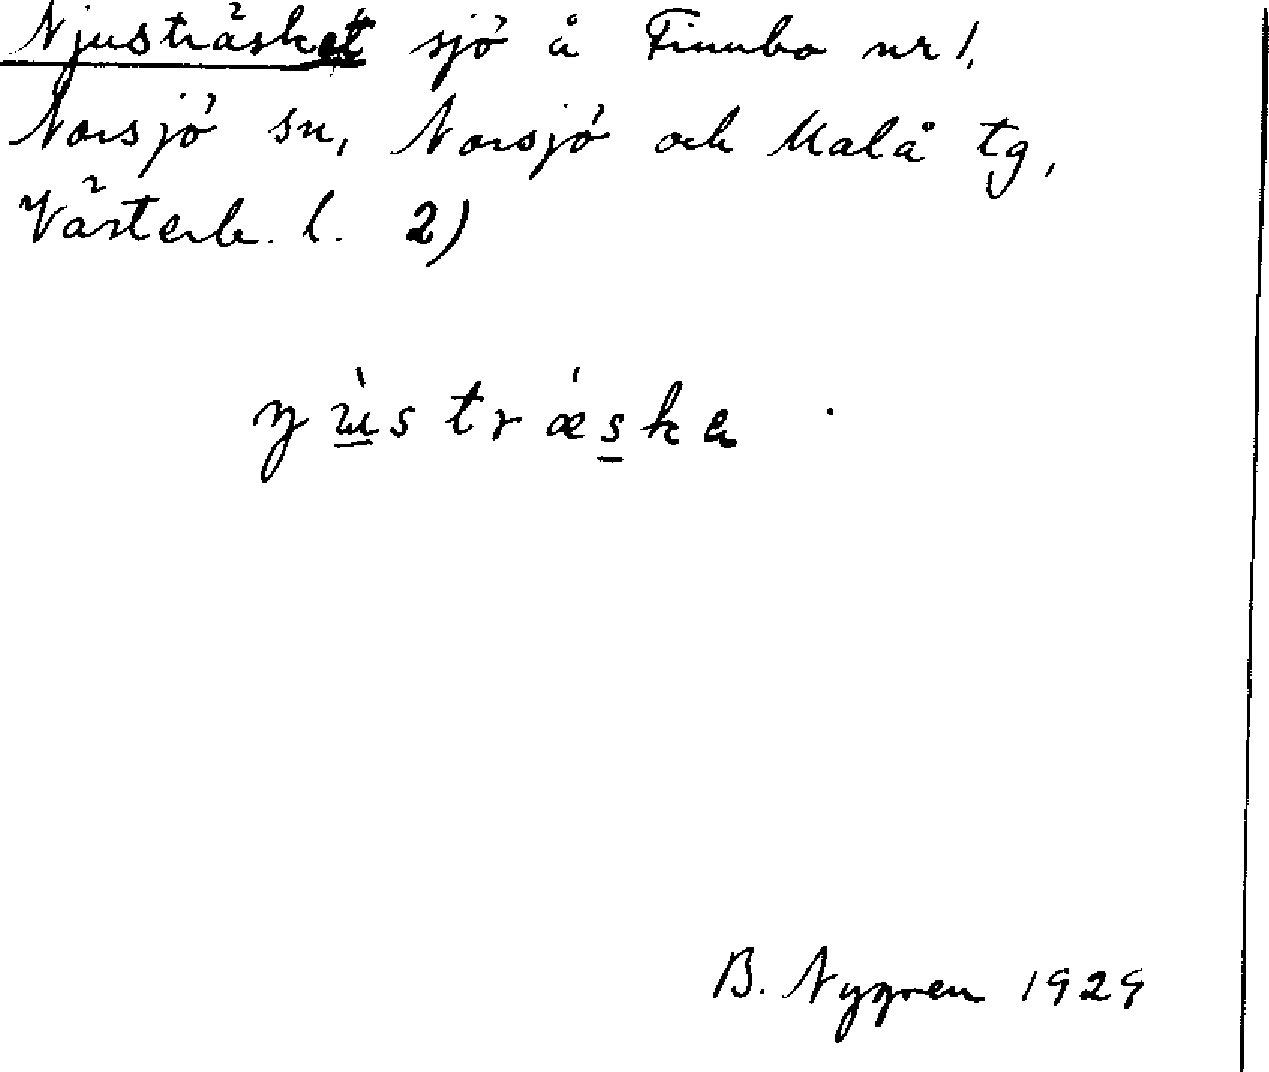 Njusträsket sjö å Finnbo nr 1,
Norsjö sn, Norsjö och Malå tg,
Västerb. l. 2)
B. Nygren 1929